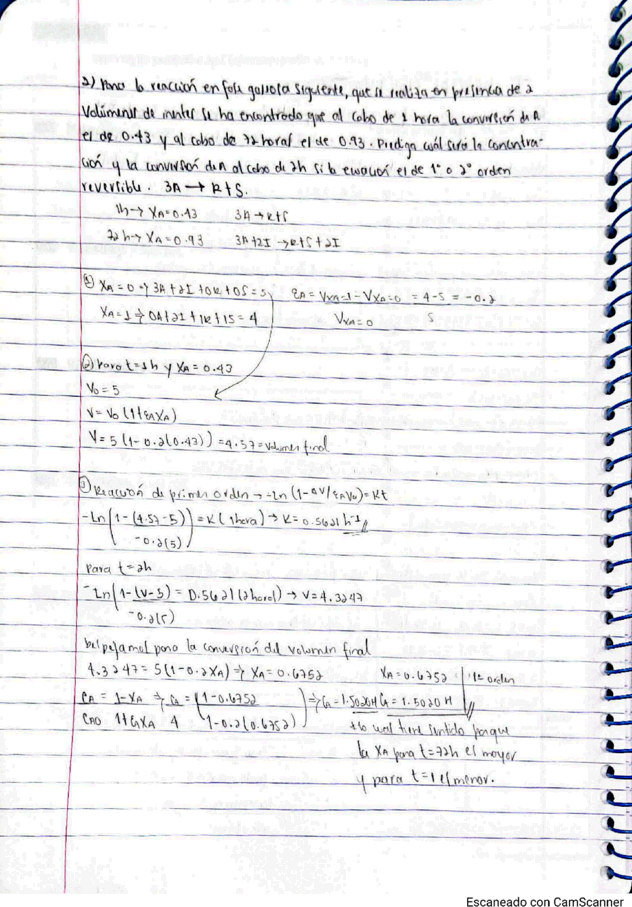 2) Para la reacción en fase gaseosa siguiente, que se realiza en presencia de 2
Volúmenes de inertes se ha encontrado que al cabo de 1 hora la conversión de A
es de 0.43 y al cabo de 72 horas es de 0.93. Prediga cuál será la concentra-
ción y la conversión de A al cabo de 2h si la ecuación es de 1° o 2° orden
reversible. 3A → R+S.
1h → XA = 0.43 3A → R+S
72h → XA = 0.93 3A+2I → R+S+2I
① XA = 0 ⇒ 3A + 2I + 0R + 0S = 5 εA = VXA=1 - VXA=0 = 4-5 = -0.2
XA = 1 ⇒ 0A + 2I + 1R + 1S = 4 VXA=0 5
② Para t = 1h y XA = 0.43
V0 = 5
V = V0 (1+εAXA)
V = 5 (1-0.2(0.43)) = 4.57 = Volumen final
③ Reacción de primer orden → -Ln (1-ΔV/εAV0) = Kt
-Ln (1-(4.57-5)) = K (1hora) → K = 0.5621 h-1
-0.2(5)
Para t = 2h
-Ln (1-(V-5) = 0.5621 (2horas) → V = 4.3247
-0.2(5)
Despejamos para la conversión del volumen final
4.3247 = 5(1-0.2XA) ⇒ XA = 0.6752 XA = 0.6752 1° orden
CA = 1-XA ⇒ CA = (1-0.6752) ⇒ CA = 1.5020M CA = 1.5020 M
CA0 1+εAXA 4 (1-0.2(0.6752))
+lo cual tiene sentido porque
la XA para t = 72h es mayor
y para t = 1 es menor.
Escaneado con CamScanner